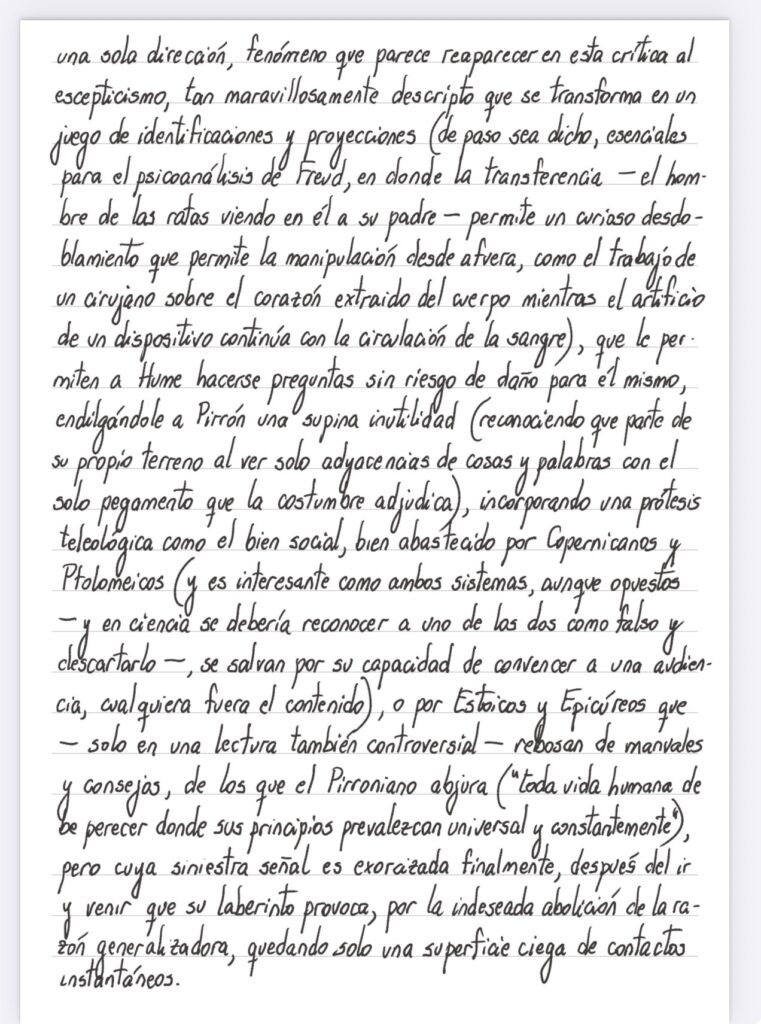 una sola dirección, fenómeno que parece reaparecer en esta crítica al
escepticismo, tan maravillosamente descripto que se transforma en un
juego de identificaciones y proyecciones (de paso sea dicho, esenciales
para el psicoanálisis de Freud, en donde la transferencia — el hom-
bre de las ratas viendo en él a su padre — permite un curioso desdo-
blamiento que permite la manipulación desde afuera, como el trabajo de
un cirujano sobre el corazón extraido del cuerpo mientras el artificio
de un dispositivo continúa con la circulación de la sangre), que le per-
miten a Hume hacerse preguntas sin riesgo de daño para él mismo,
endilgándole a Pirrón una supina inutilidad (reconociendo que parte de
su propio terreno al ver solo adyacencias de cosas y palabras con el
solo pegamento que la costumbre adjudica), incorporando una prótesis
teleológica como el bien social, bien abastecido por Copernicanos y
Ptolomeicos (y es interesante como ambos sistemas, aunque opuestos
— y en ciencia se debería reconocer a uno de los dos como falso y
descartarlo —, se salvan por su capacidad de convencer a una audien-
cia, cualquiera fuera el contenido), o por Estoicos y Epicúreos que
— solo en una lectura también controversial — rebosan de manuales
y consejos, de los que el Pirroniano abjura ("toda vida humana de
be perecer donde sus principios prevalezcan universal y constantemente"),
pero cuya siniestra señal es exorcizada finalmente, después del ir
y venir que su laberinto provoca, por la indeseada abolición de la ra-
zón generalizadora, quedando solo una superficie ciega de contactos
instantáneos.